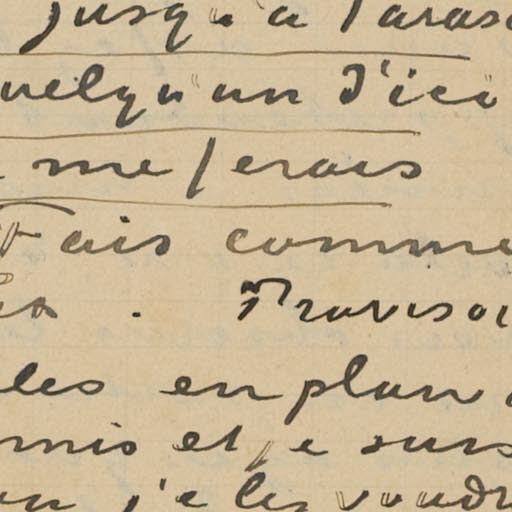 jusqu'à Paras
quelqu'un d'ici
me ferais
Fais comme
. Provisoi
les en plan
mis et je suis
j'e les voudr